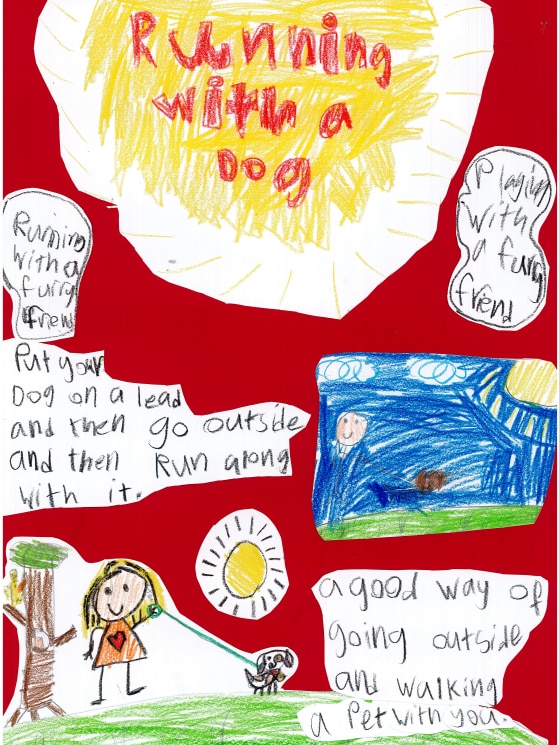 Running
with a
Dog
Playing
with
a furry
friend
Running
with a
furry
friend
Put your
Dog on a lead
and then go outside
and then Run along
with it.
a good way of
going outside
and walking
a Pet with you.